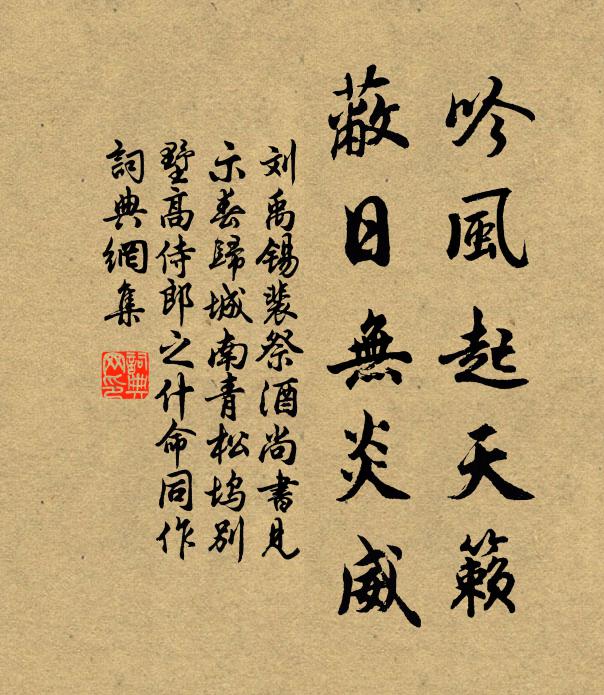 吟風起天籟
蔽日無炎威
刘禹锡裴祭酒尚書見
示春歸城南青松塢別
墅高侍郎之什命同作
詞典網集
詞典
网印